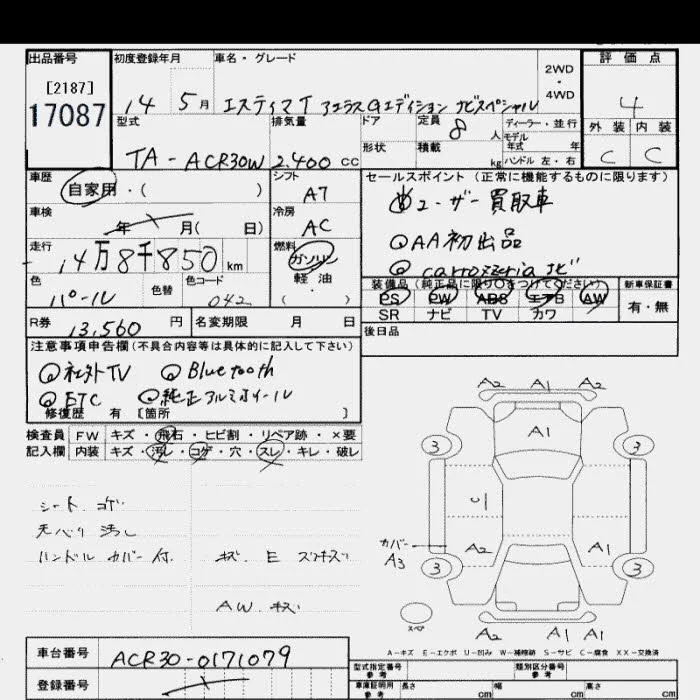 出品番号
[2187]
17087
初度登録年月
14 5月
車名・グレード
エスティマT アエラスGエディション ナビスペシャル
2WD
・
4WD
評価点
4
外装 内装
C C
型式
TA-ACR30W
排気量
2.400 CC
ドア
形状
定員
8 人
積載
kg
ディーラー・並行
モデル
年式 年
ハンドル 左・右
車歴
自家用・( )
シフト
A7
車検
年 月( 日)
冷房
AC
走行
14万8千850 km
燃料
ガソリン
軽油
( ・ )
色
パール
色替
色コード
042
R券
13,560 円
名変期限 月 日
セールスポイント(正常に機能するものに限ります)
ユーザー買取車
AA初出品
carrozzeria ナビ
装備品(純正品に限り○をつけてください)
PS PW ABS エアB AW
SR ナビ TV カワ
新車保証書
有・無
後日品
注意事項申告欄(不具合内容等は具体的に記入して下さい)
社外TV Bluetooth
ETC 純正アルミホイール
修復歴 有 [箇所 ]
検査員 FW キズ・飛石・ヒビ割・リペア跡・×要
記入欄 内装 キズ・汚レ・コゲ・穴・スレ・キレ・破レ
シート コゲ
天ベリ 汚レ
ハンドル カバー 付.
キズ E スリキズ
AW. キズ
A2 A1 A2
A1
3 3
U1
カバー
A3
A2 A1
3 3
スペア
A2 A1 A1
A-キズ E-エクボ U-凹み W-補修跡 S-サビ C-腐食 XX-交換済
車台番号
ACR30-0171079
登録番号
型式指定番号
参考
類別区分番号
参考
車庫証明用
参考
長さ cm 幅 cm 高さ cm